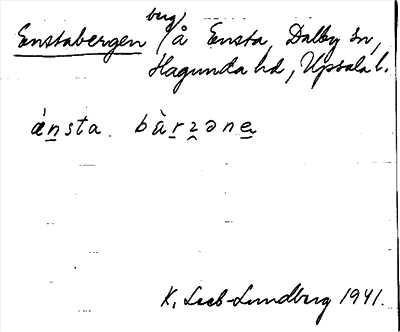 Enstabergen berg å Ensta, Dalby sn,
Hagunda hd, Upsala l.
ǽnsta. bàrzəne
K. Leeb-Lundberg 1941.